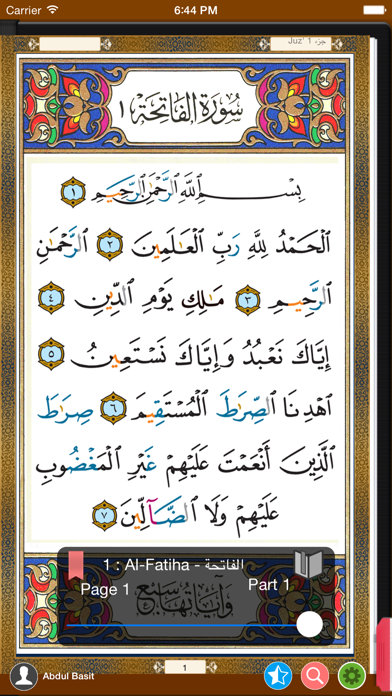 Carrier 6:44 PM
Juz' 1 جزء
سُورَةُ الفَاتِحَةِ ١
بِسْمِ اللَّهِ الرَّحْمَٰنِ الرَّحِيمِ ١
الْحَمْدُ لِلَّهِ رَبِّ الْعَالَمِينَ ٢ الرَّحْمَٰنِ
الرَّحِيمِ ٣ مَالِكِ يَوْمِ الدِّينِ ٤
إِيَّاكَ نَعْبُدُ وَإِيَّاكَ نَسْتَعِينُ ٥
اهْدِنَا الصِّرَاطَ الْمُسْتَقِيمَ ٦ صِرَاطَ
الَّذِينَ أَنْعَمْتَ عَلَيْهِمْ غَيْرِ الْمَغْضُوبِ
عَلَيْهِمْ وَلَا الضَّآلِّينَ ٧
1 : Al-Fatiha - الفاتحة
Page 1 Part 1
وآياتها سبع
1
Abdul Basit